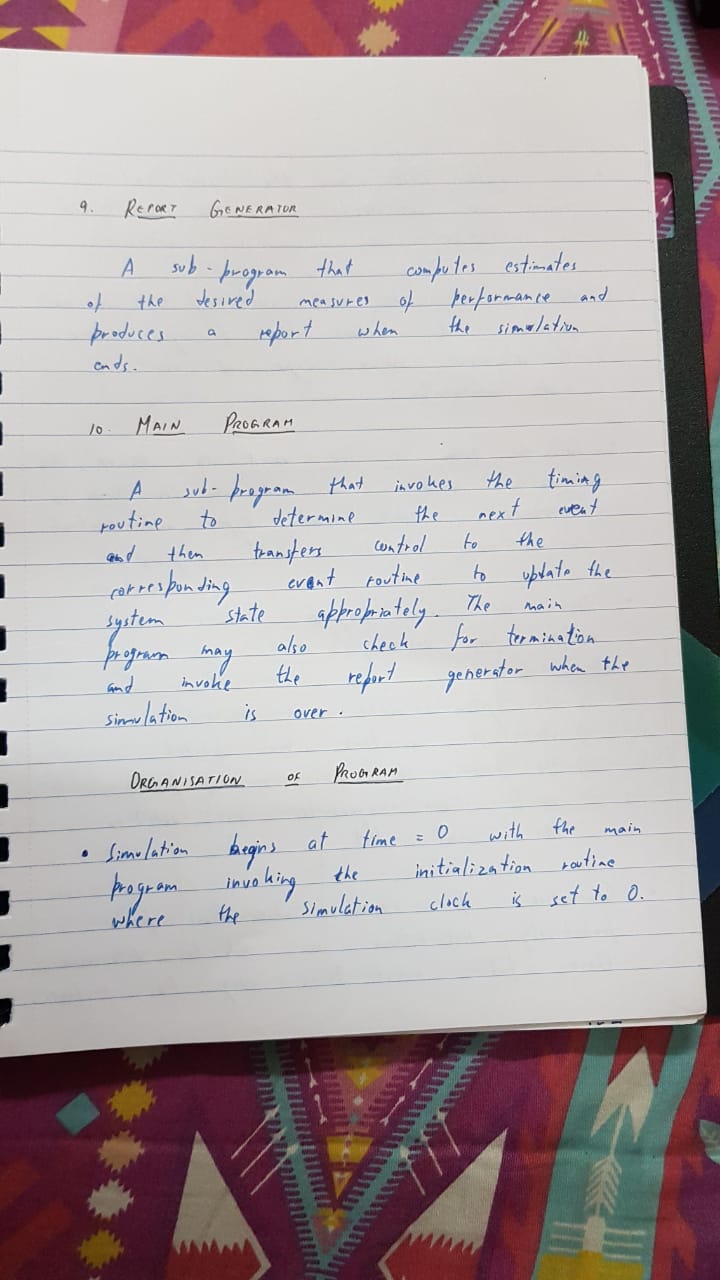 9. REPORT GENERATOR
A sub-program that computes estimates
of the desired measures of performance and
produces a report when the simulation
ends.
10. MAIN PROGRAM
A sub-program that invokes the timing
routine to determine the next event
and then transfers control to the
corresponding event routine to update the
system state appropriately. The main
program may also check for termination
and invoke the report generator when the
simulation is over.
ORGANISATION OF PROGRAM
• Simulation begins at time = 0 with the main
program invoking the initialization routine
where the simulation clock is set to 0.